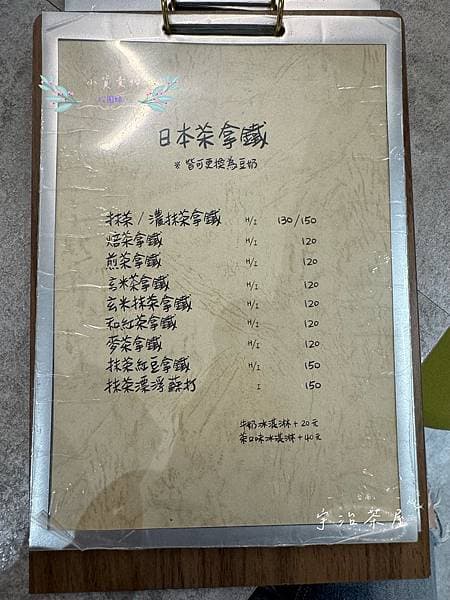 日本茶拿鐵
※ 皆可更換為豆奶
抹茶/濃抹茶拿鐵 H/I 130/150
焙茶拿鐵 H/I 120
煎茶拿鐵 H/I 120
玄米茶拿鐵 H/I 120
玄米抹茶拿鐵 H/I 120
和紅茶拿鐵 H/I 120
麥茶拿鐵 H/I 120
抹茶紅豆拿鐵 H/I 150
抹茶漂浮蘇打 I 150
牛奶冰淇淋+20元
茶口味冰淇淋+40元
宇治茶屋